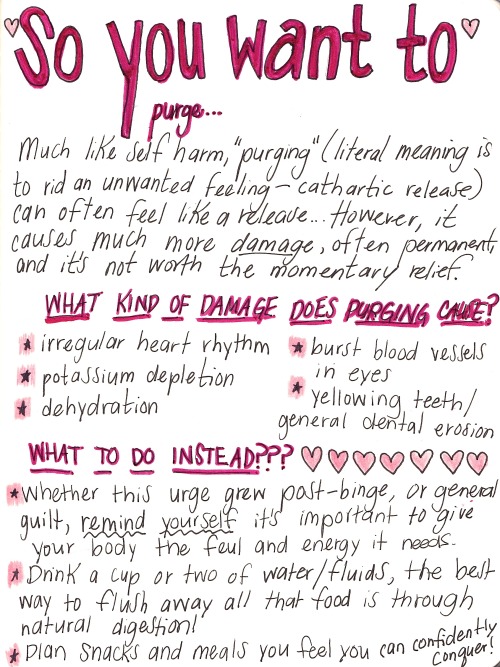 So you want to
purge...
Much like self harm, "purging" (literal meaning is
to rid an unwanted feeling - cathartic release)
can often feel like a release... However, it
causes much more damage, often permanent,
and it's not worth the momentary relief.
WHAT KIND OF DAMAGE DOES PURGING CAUSE?
★ irregular heart rhythm
★ potassium depletion
★ dehydration
★ burst blood vessels
in eyes
★ yellowing teeth/
general dental erosion
WHAT TO DO INSTEAD???
★ Whether this urge grew post-binge, or general
guilt, remind yourself it's important to give
your body the feul and energy it needs.
★ Drink a cup or two of water/fluids, the best
way to flush away all that food is through
natural digestion!
★ Plan snacks and meals you feel you can confidently
conquer!